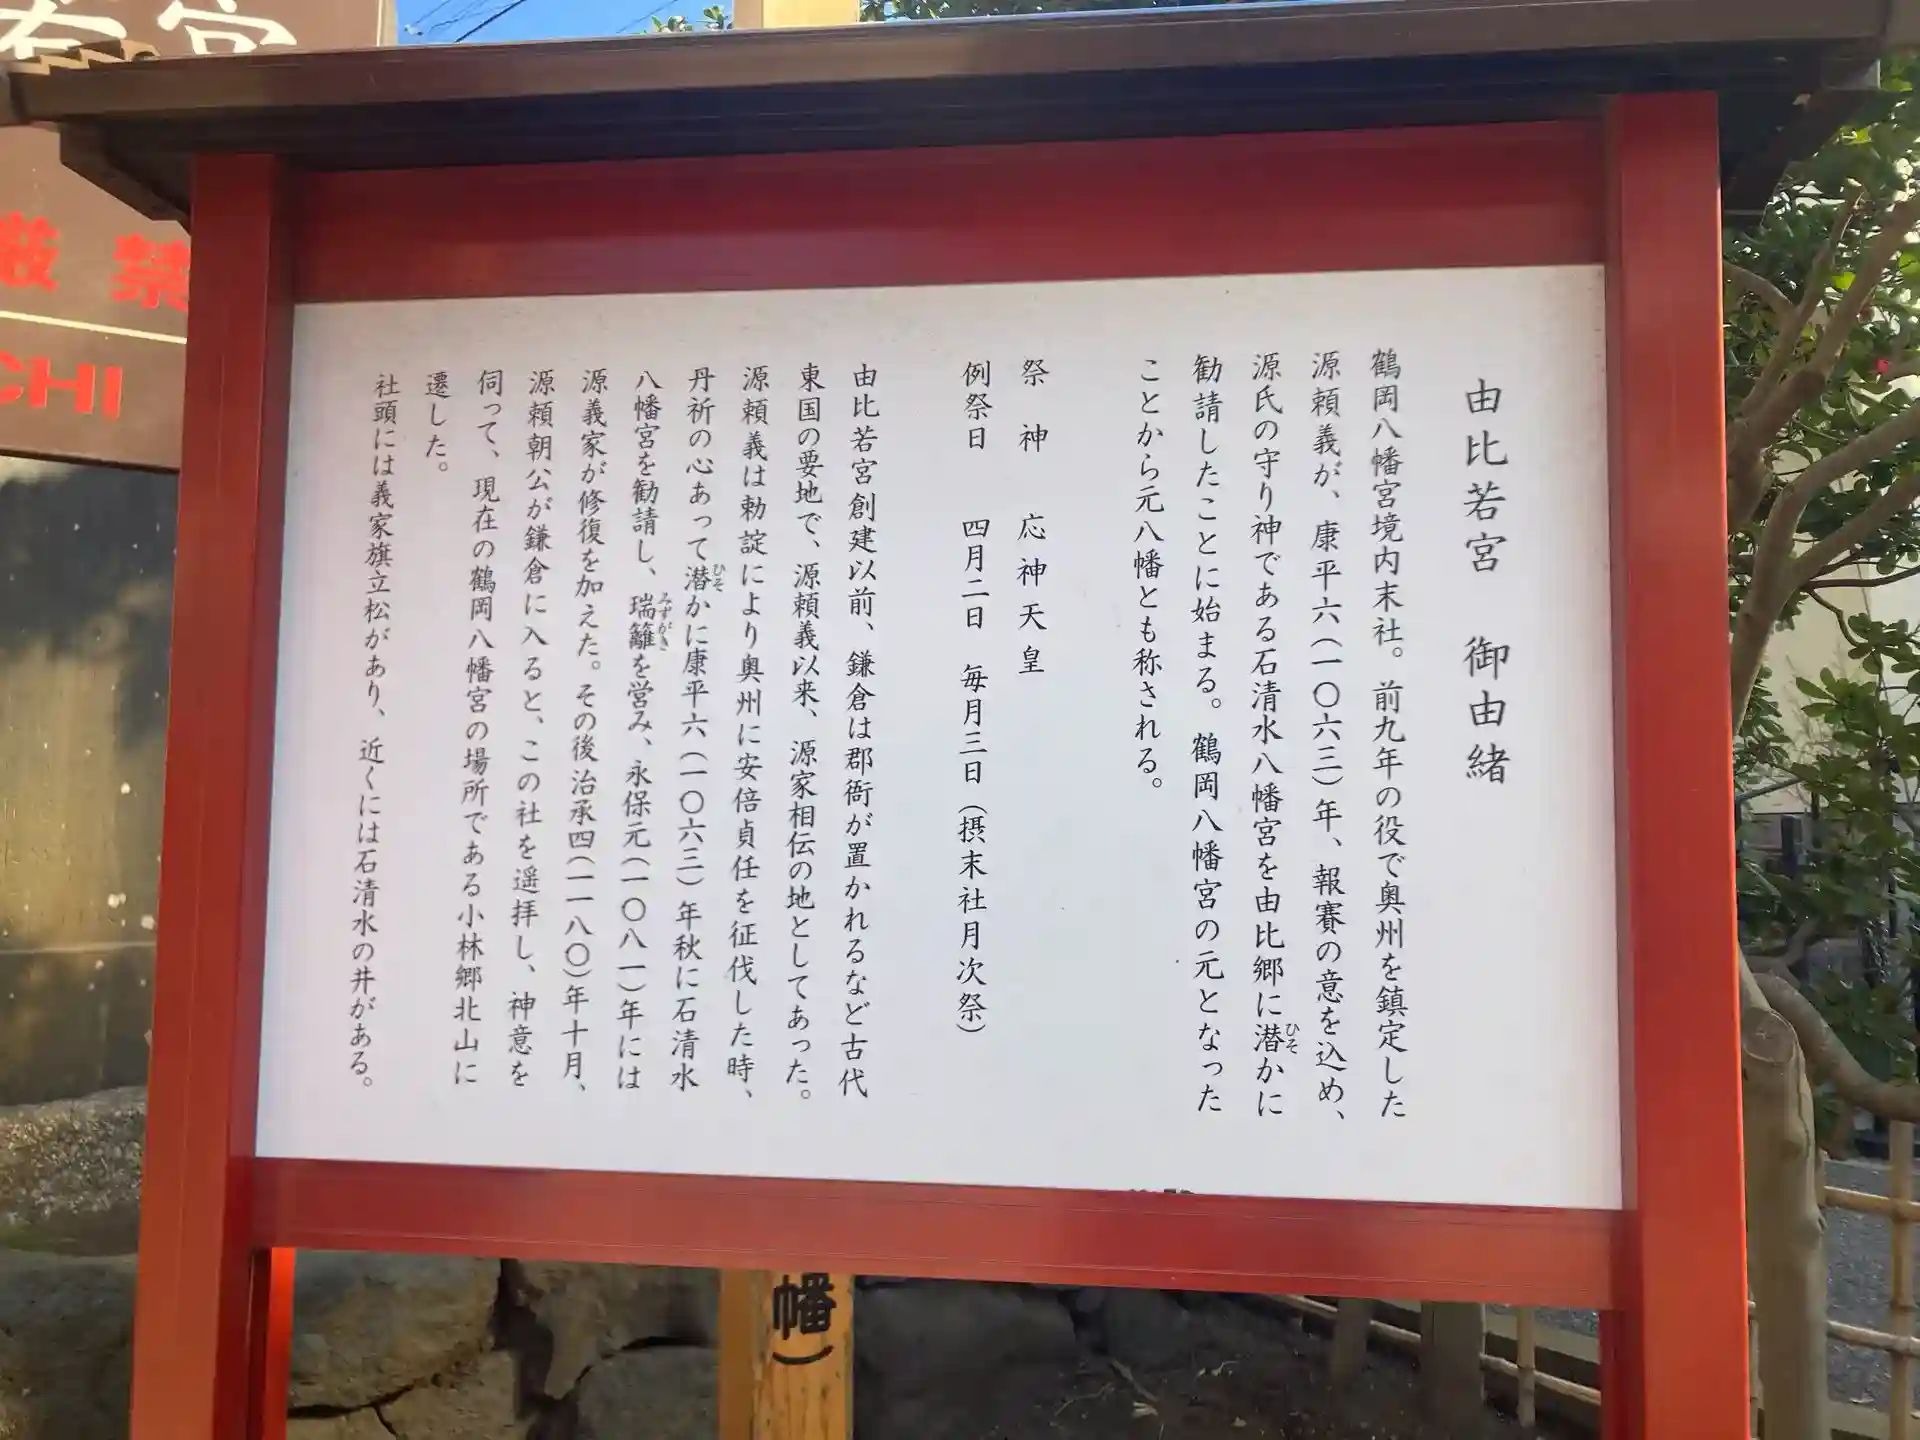 由比若宮　御由緒
鶴岡八幡宮境内末社。前九年の役で奥州を鎮定した
源頼義が、康平六（一〇六三）年、報賽の意を込め、
源氏の守り神である石清水八幡宮を由比郷に潜かに
ひそ
勧請したことに始まる。鶴岡八幡宮の元となった
ことから元八幡とも称される。
祭　神　応神天皇
例祭日　四月二日　毎月三日（摂末社月次祭）
由比若宮創建以前、鎌倉は郡衙が置かれるなど古代
東国の要地で、源頼義以来、源家相伝の地としてあった。
源頼義は勅諚により奥州に安倍貞任を征伐した時、
丹祈の心あって潜かに康平六（一〇六三）年秋に石清水
ひそ
八幡宮を勧請し、瑞籬を営み、永保元（一〇八一）年には
みずがき
源義家が修復を加えた。その後治承四（一一八〇）年十月、
源頼朝公が鎌倉に入ると、この社を遥拝し、神意を
伺って、現在の鶴岡八幡宮の場所である小林郷北山に
遷した。
社頭には義家旗立松があり、近くには石清水の井がある。
厳禁
CHI
幡）